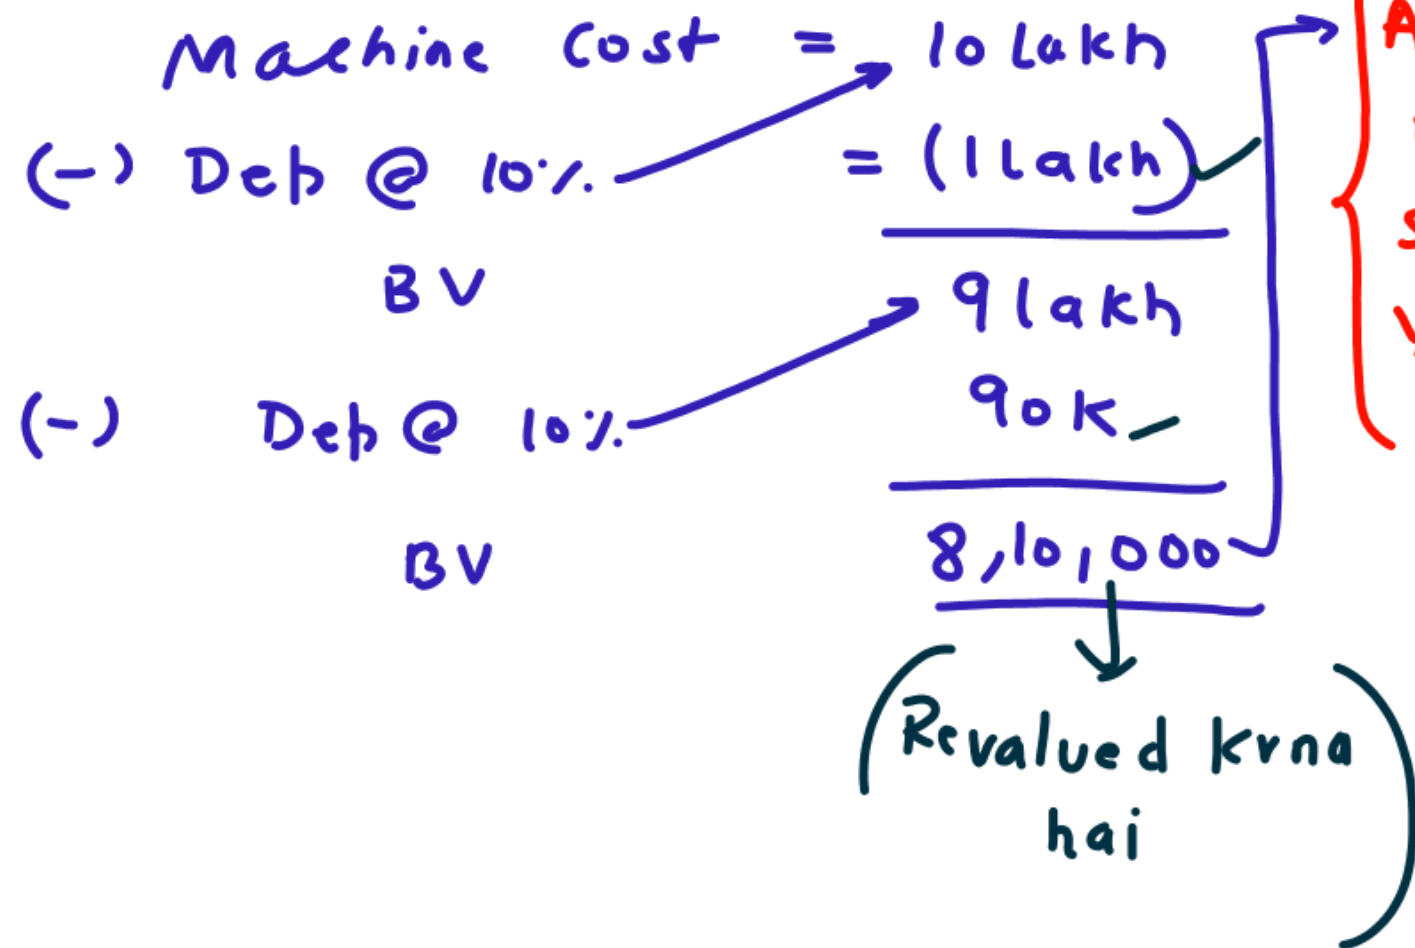 Machine Cost = 10 Lakh
(-) Dep @ 10% = (1 Lakh)
BV 9 lakh
(-) Dep @ 10% 90K
BV 8,10,000
(Revalued krna
hai)